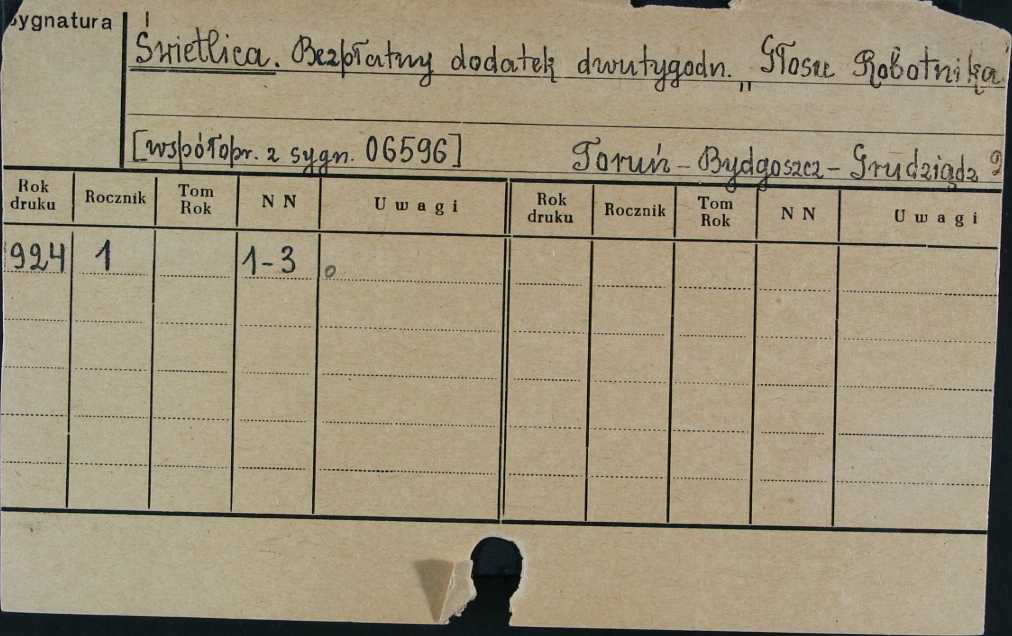 Sygnatura
Świetlica. Bezpłatny dodatek dwutygodn. „Głosu Robotnika
[współopr. z sygn. 06596] Toruń - Bydgoszcz - Grudziądz
Rok druku Rocznik Tom Rok N N Uwagi Rok druku Rocznik Tom Rok N N Uwagi
924 1 1-3